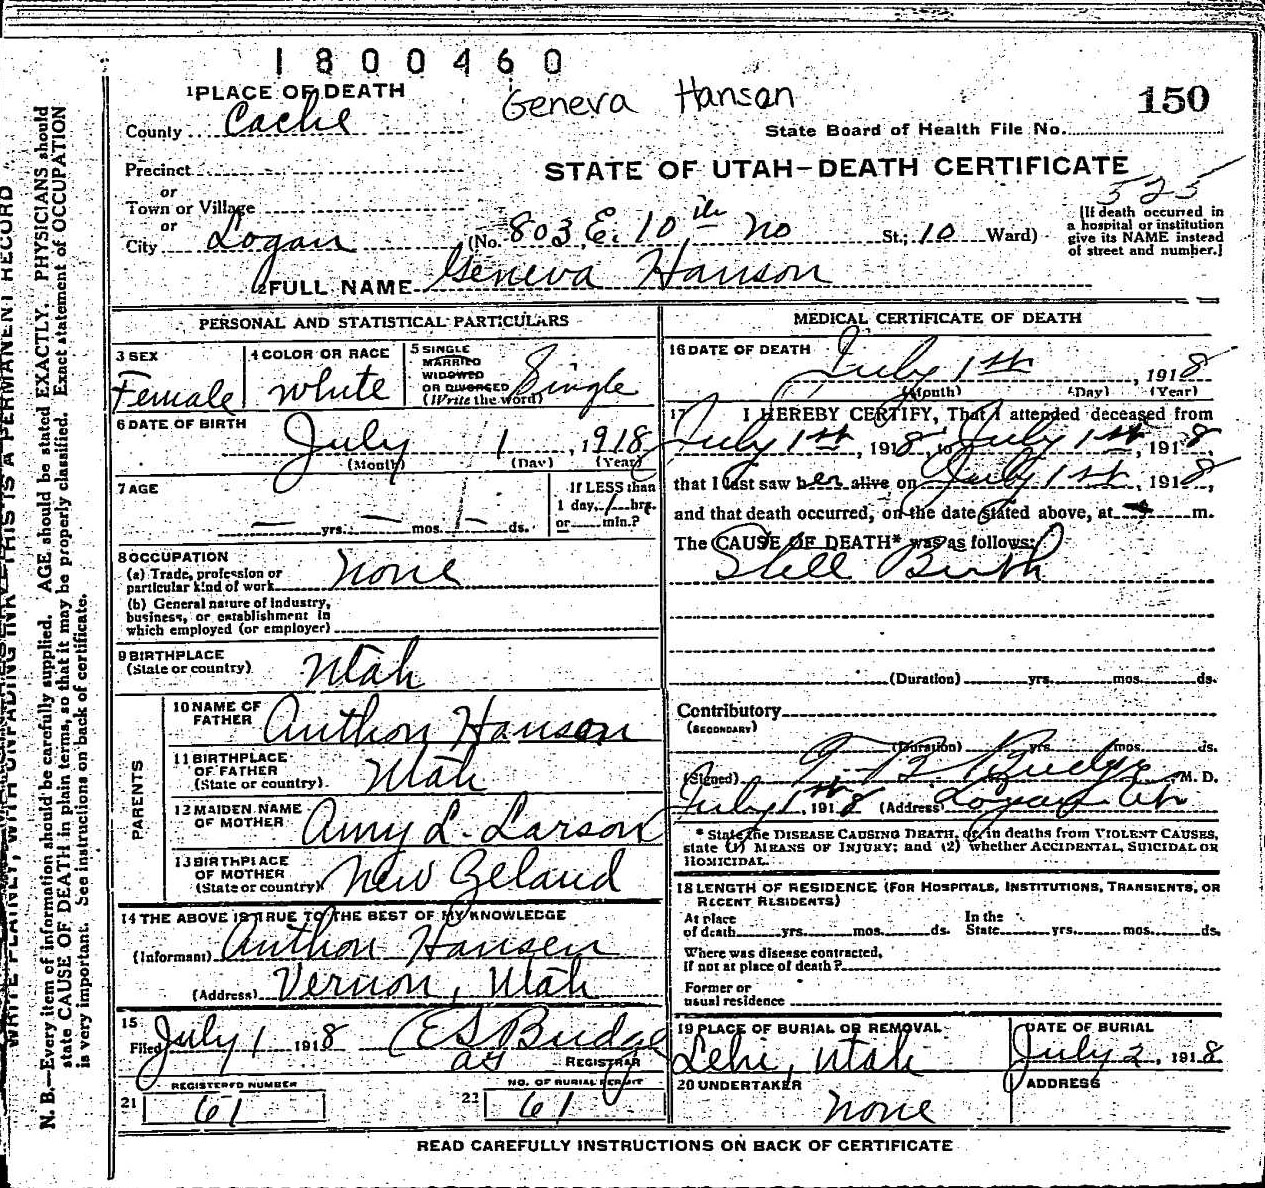 1800460
1 PLACE OF DEATH
Geneva Hanson
150
County Cache
State Board of Health File No.
Precinct
STATE OF UTAH—DEATH CERTIFICATE
or
525
Town or Village
or
City Logan (No. 803 E. 10th No St.; 10 Ward)
[If death occurred in
a hospital or institution
give its NAME instead
of street and number.]
2 FULL NAME Geneva Hanson
PERSONAL AND STATISTICAL PARTICULARS
3 SEX
Female
4 COLOR OR RACE
White
5 SINGLE
MARRIED
WIDOWED
OR DIVORCED
(Write the word)
Single
6 DATE OF BIRTH
July 1, 1918
(Month) (Day) (Year)
7 AGE
— yrs. — mos. — ds.
If LESS than
1 day, 1 hrs.
or min.?
8 OCCUPATION
(a) Trade, profession or
particular kind of work None
(b) General nature of Industry,
business, or establishment in
which employed (or employer)
9 BIRTHPLACE
(State or country) Utah
PARENTS
10 NAME OF
FATHER Anthon Hanson
11 BIRTHPLACE
OF FATHER
(State or country) Utah
12 MAIDEN NAME
OF MOTHER Amy L. Larson
13 BIRTHPLACE
OF MOTHER
(State or country) New Zeland
14 THE ABOVE IS TRUE TO THE BEST OF MY KNOWLEDGE
(Informant) Anthon Hansen
(Address) Vernon, Utah
15
Filed July 1 1918 E S Budge
REGISTRAR
REGISTERED NUMBER
21 61
NO. OF BURIAL PERMIT
22 61
MEDICAL CERTIFICATE OF DEATH
16 DATE OF DEATH
July 1st, 1918
(Month) (Day) (Year)
17 I HEREBY CERTIFY, That I attended deceased from
July 1st, 1918, to July 1st, 1918,
that I last saw her alive on July 1st, 1918,
and that death occurred, on the date stated above, at m.
The CAUSE OF DEATH* was as follows:
Still Birth
(Duration) yrs. mos. ds.
Contributory
(SECONDARY)
(Duration) yrs. mos. ds.
(Signed) T B Budge M. D.
July 1st, 1918 (Address) Logan Ut
* State the DISEASE CAUSING DEATH, or, in deaths from VIOLENT CAUSES,
state (1) MEANS OF INJURY; and (2) whether ACCIDENTAL, SUICIDAL OR
HOMICIDAL.
18 LENGTH OF RESIDENCE (FOR HOSPITALS, INSTITUTIONS, TRANSIENTS, OR
RECENT RESIDENTS)
At place
of death yrs. mos. ds.
In the
State yrs. mos. ds.
Where was disease contracted,
If not at place of death?
Former or
usual residence
19 PLACE OF BURIAL OR REMOVAL
Lehi, Utah
DATE OF BURIAL
July 2, 1918
20 UNDERTAKER
None
ADDRESS
READ CAREFULLY INSTRUCTIONS ON BACK OF CERTIFICATE
WRITE PLAINLY, WITH UNFADING INK—THIS IS A PERMANENT RECORD
N. B.—Every item of information should be carefully supplied. AGE should be stated EXACTLY. PHYSICIANS should
state CAUSE OF DEATH in plain terms, so that it may be properly classified. Exact statement of OCCUPATION
is very important. See instructions on back of certificate.